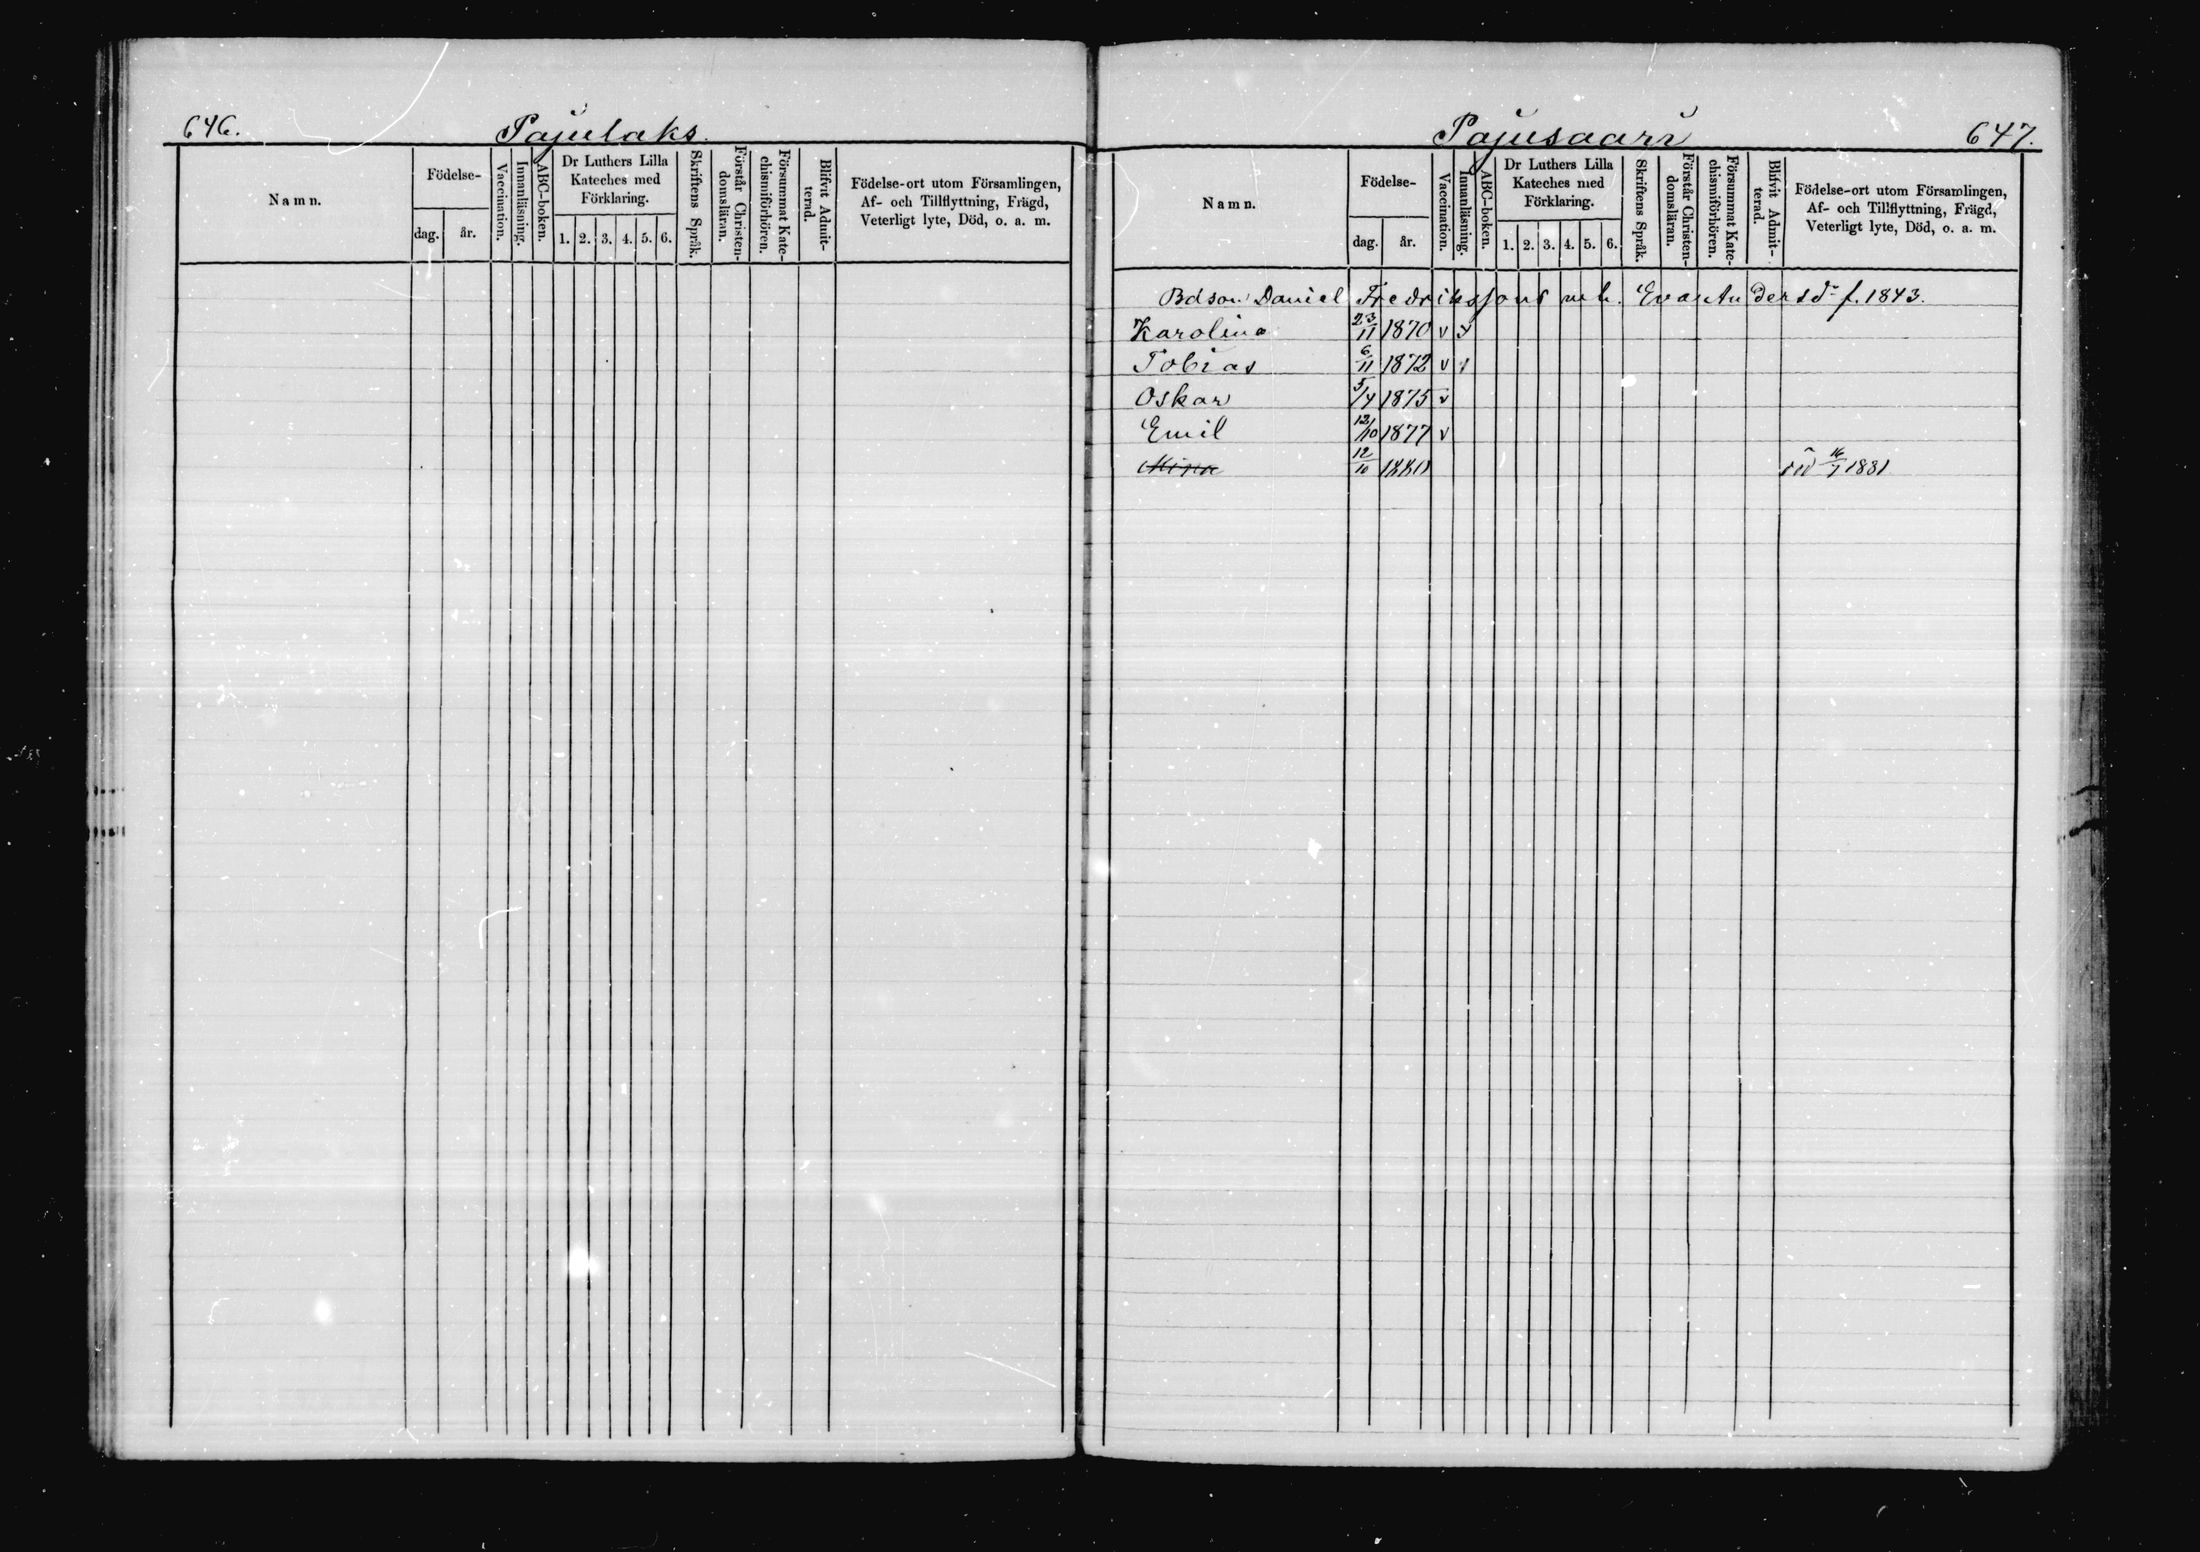 646.
Pajulaks.
Namn.
Födelse-
dag. år.
Vaccination.
Innanläsning.
ABC-boken.
Dr Luthers Lilla
Kateches med
Förklaring.
1. 2. 3. 4. 5. 6.
Skriftens Språk.
Förstår Christen-
domsläran.
Försummat Kate-
chismiförhören.
Blifvit Admit-
terad.
Födelse-ort utom Församlingen,
Af- och Tillflyttning, Frägd,
Veterligt lyte, Död, o. a. m.
Pajusaari
647.
Namn.
Födelse-
dag. år.
Vaccination.
Innanläsning.
ABC-boken.
Dr Luthers Lilla
Kateches med
Förklaring.
1. 2. 3. 4. 5. 6.
Skriftens Språk.
Förstår Christen-
domsläran.
Försummat Kate-
chismiförhören.
Blifvit Admit-
terad.
Födelse-ort utom Församlingen,
Af- och Tillflyttning, Frägd,
Veterligt lyte, Död, o. a. m.
Bdson Daniel Fredrikssons m. h. Eva Andersdr f. 1843.
Karolina 23/11 1870 v v
Tobias 6/11 1872 v v
Oskar 5/4 1875 v
Emil 12/10 1877 v
Mina 12/10 1880 död 16/7 1881